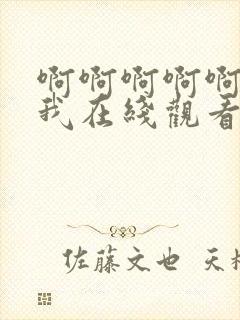 啊啊啊啊啊
我在綫觀看
佐藤文也 天